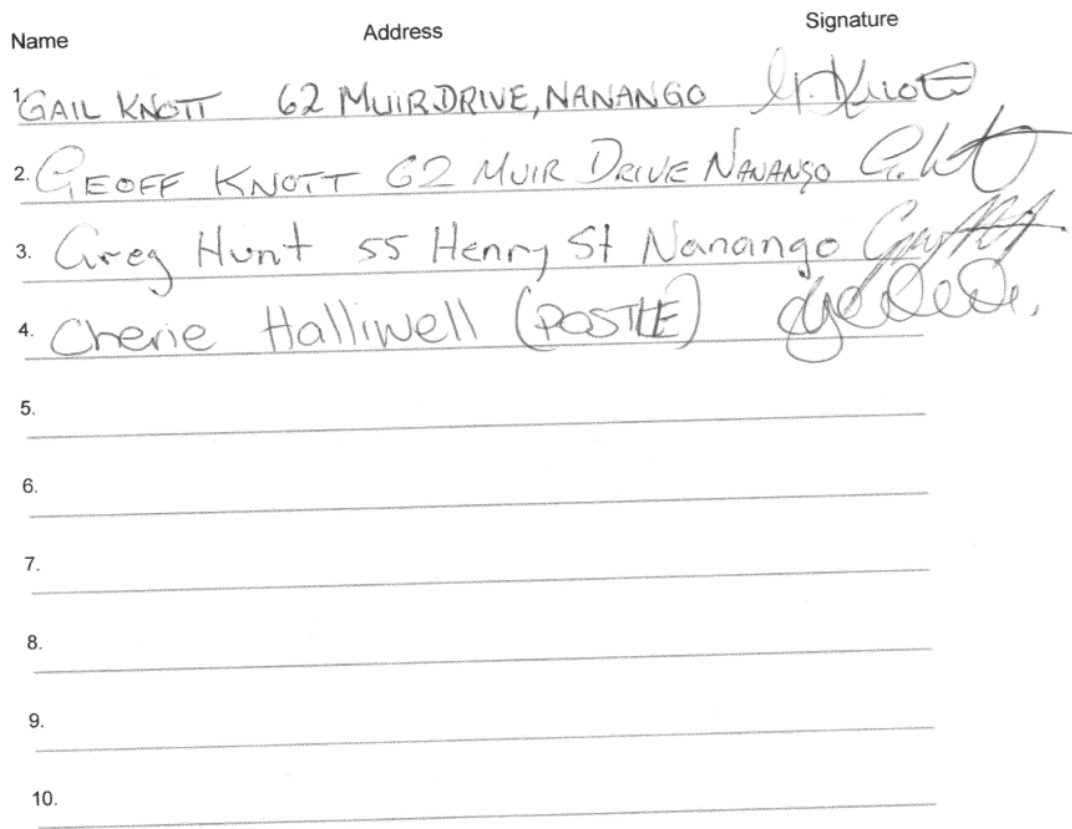 Name Address Signature
1. GAIL KNOTT 62 MUIR DRIVE, NANANGO G. Knott
2. GEOFF KNOTT 62 MUIR DRIVE NANANGO
3. Greg Hunt 55 Henry St Nanango
4. Cherie Halliwell (POSTLE)
5.
6.
7.
8.
9.
10.